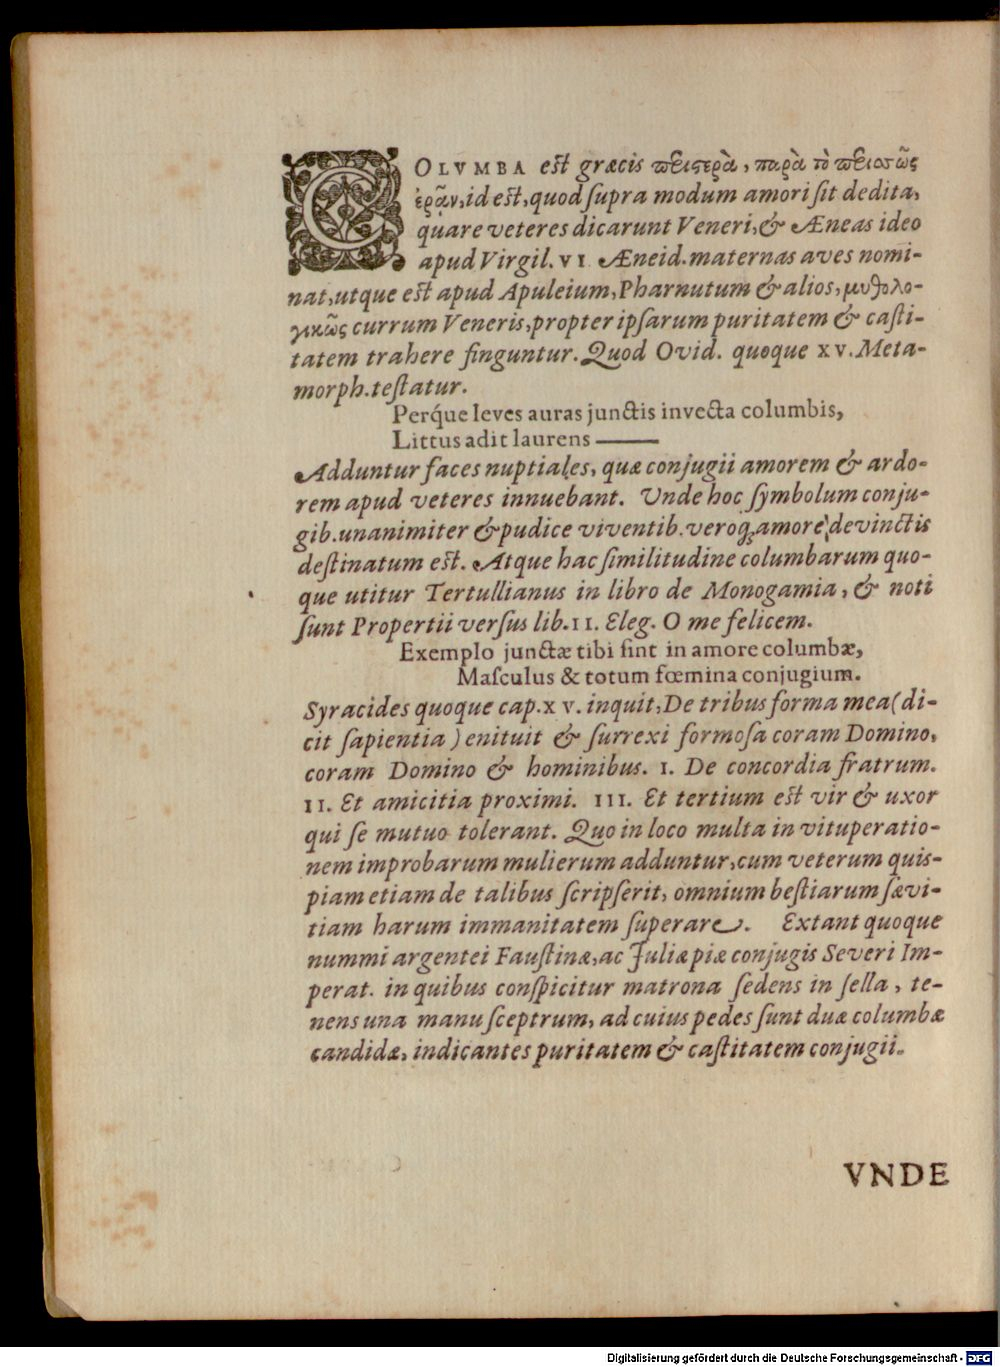 COLVMBA est græcis περιςερὰ, παρὰ τὸ περιστῶς
ἐρᾷν, id est, quod ſupra modum amori ſit dedita,
quare veteres dicarunt Veneri, & Æneas ideo
apud Virgil. VI Æneid. maternas aves nomi-
nat, utque est apud Apuleium, Pharnutum & alios, μυθολο-
γικῶς currum Veneris, propter ipſarum puritatem & caſti-
tatem trahere finguntur. Quod Ovid. quoque XV. Meta-
morph. teſtatur.
Perq́ue leves auras junctis invecta columbis,
Littus adit laurens ——
Adduntur faces nuptiales, quæ conjugii amorem & ardo-
rem apud veteres innuebant. Vnde hoc ſymbolum conju-
gib. unanimiter & pudice viventib. veroq; amore devinctis
deſtinatum est. Atque hac ſimilitudine columbarum quo-
que utitur Tertullianus in libro de Monogamia, & noti
ſunt Propertii verſus lib. II. Eleg. O me felicem.
Exemplo junctæ tibi ſint in amore columbæ,
Maſculus & totum fœmina conjugium.
Syracides quoque cap. XV. inquit, De tribus forma mea (di-
cit ſapientia) enituit & ſurrexi formoſa coram Domino,
coram Domino & hominibus. I. De concordia fratrum.
II. Et amicitia proximi. III. Et tertium est vir & uxor
qui ſe mutuo tolerant. Quo in loco multa in vituperatio-
nem improbarum mulierum adduntur, cum veterum quis-
piam etiam de talibus ſcripſerit, omnium beſtiarum ſævi-
tiam harum immanitatem ſuperare. Extant quoque
nummi argentei Fauſtinæ, ac Juliæ piæ conjugis Severi Im-
perat. in quibus conſpicitur matrona ſedens in ſella, te-
nens una manu ſceptrum, ad cuius pedes ſunt duæ columbæ
candidæ, indicantes puritatem & caſtitatem conjugii.
VNDE
Digitalisierung gefördert durch die Deutsche Forschungsgemeinschaft - DFG